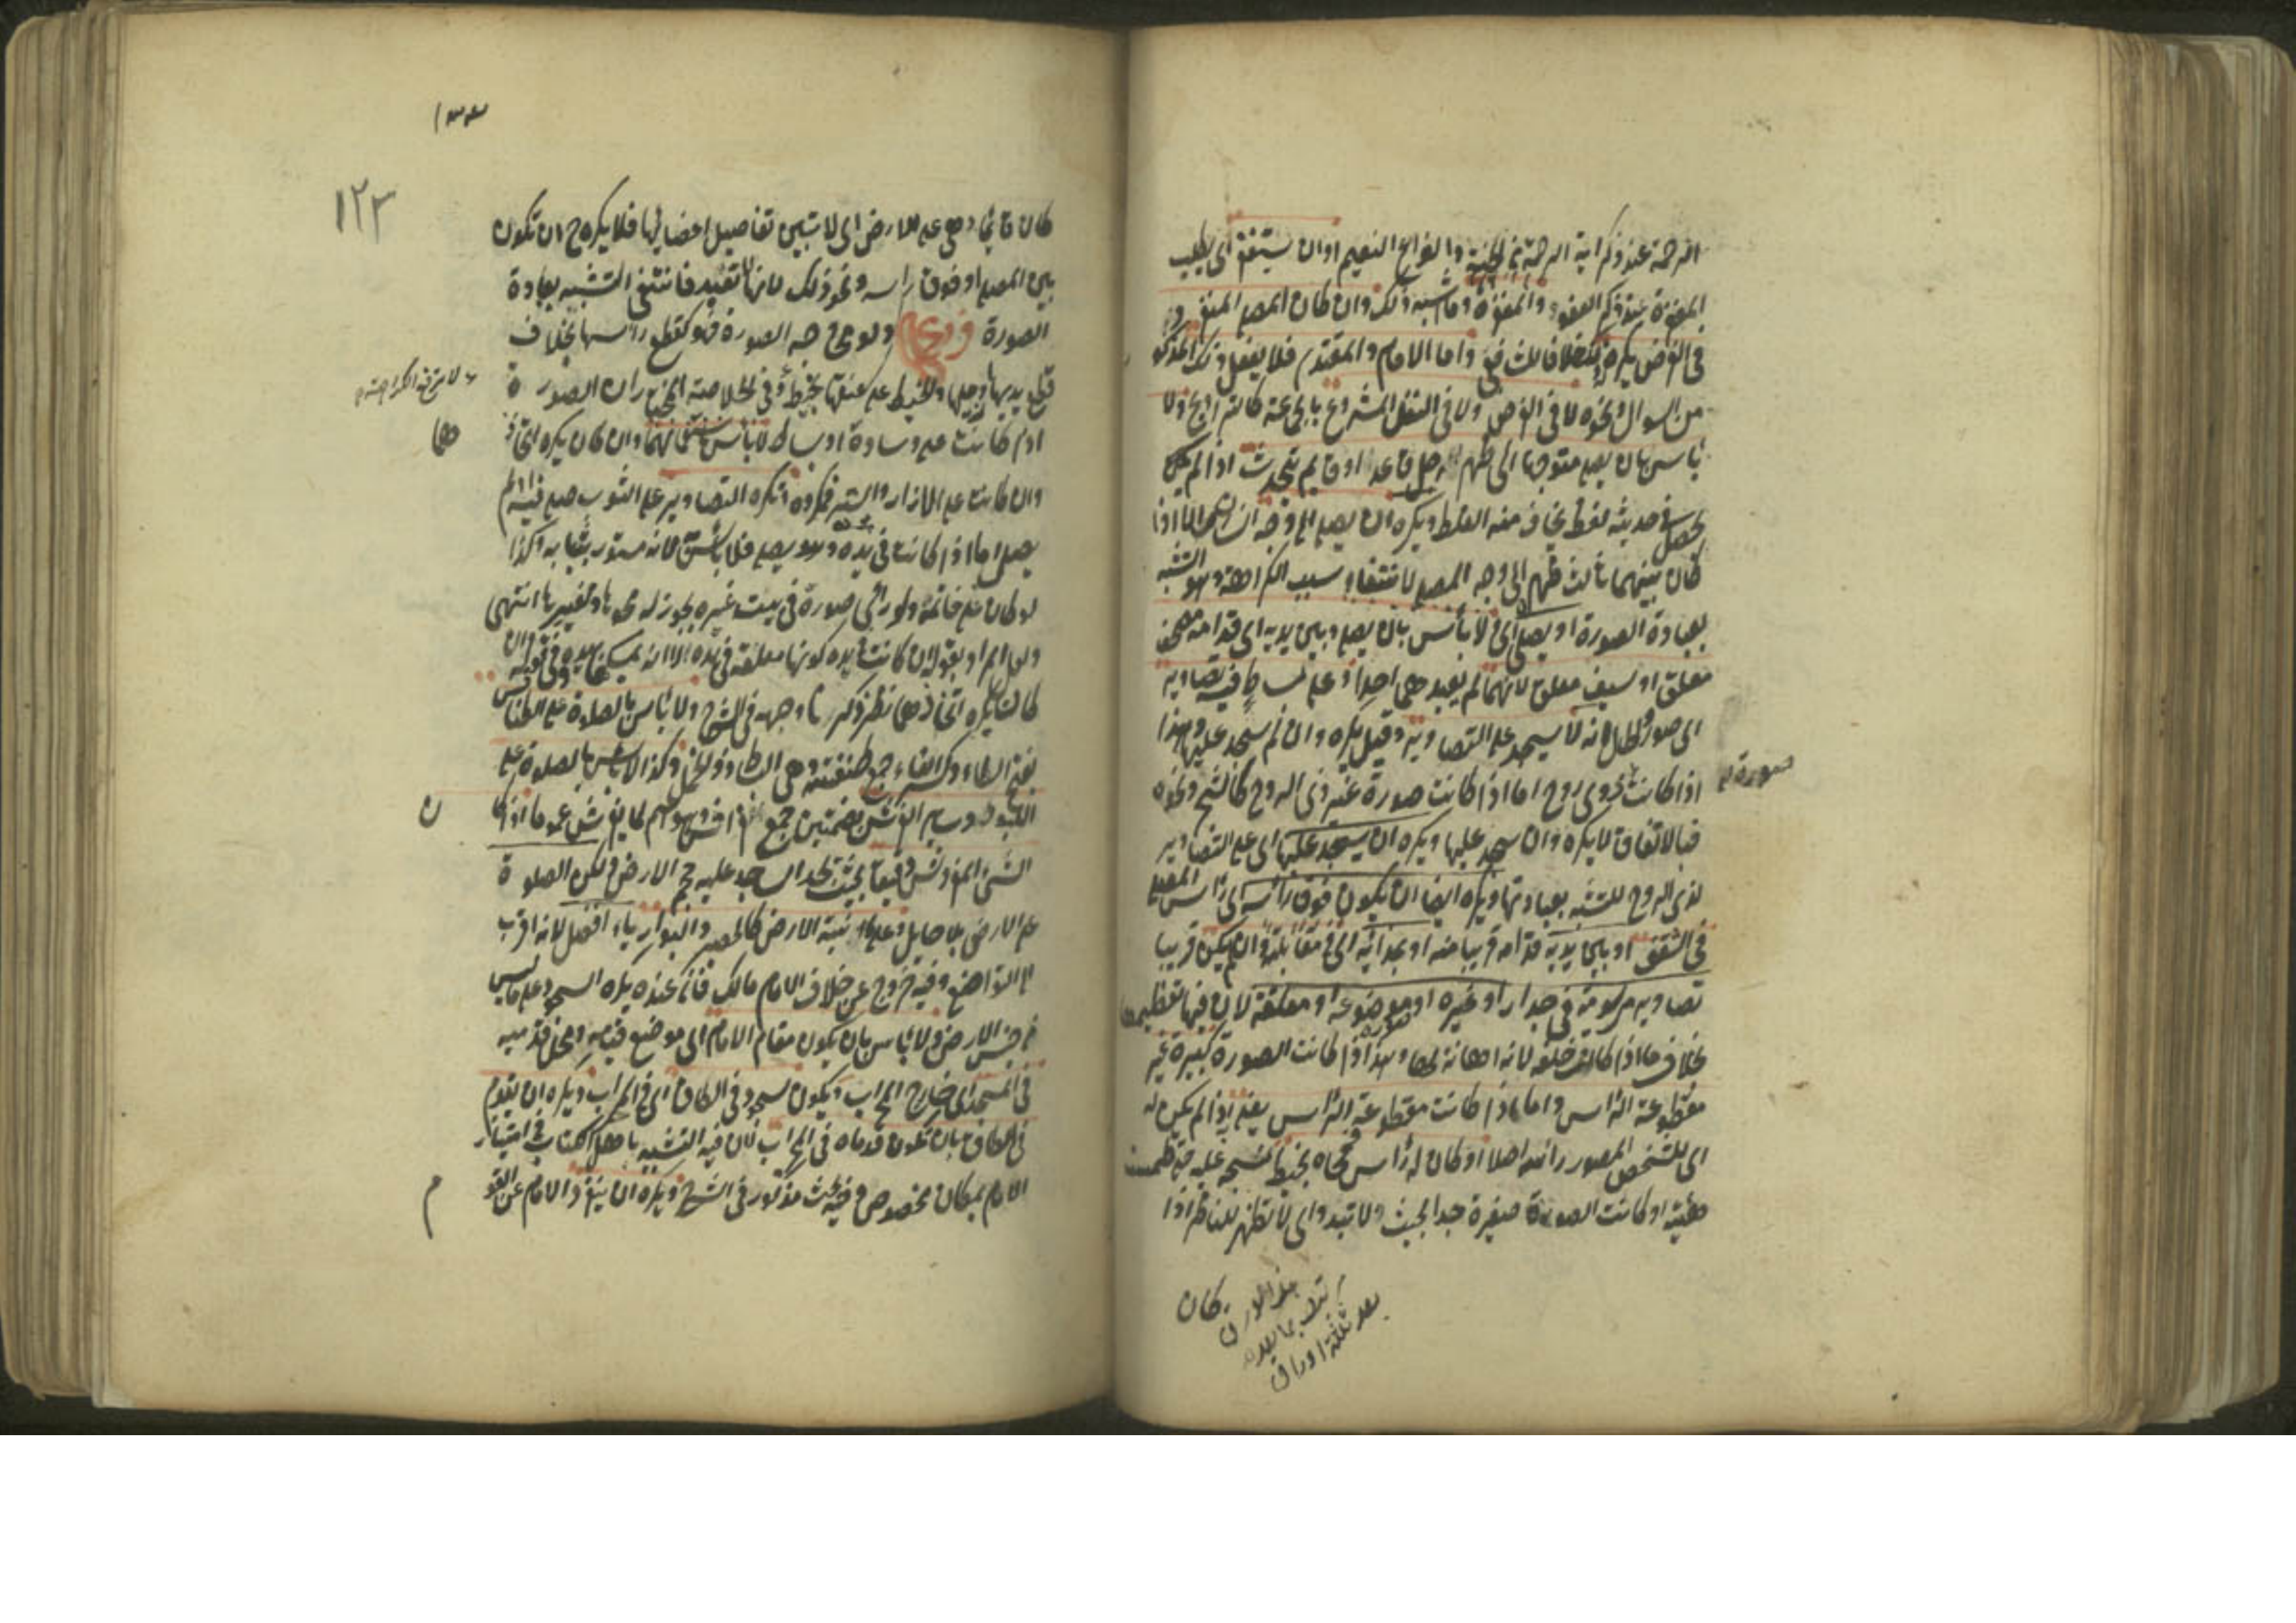 الرحمة عند ذكر اية الرحمة من الجنة وانواع النعيم او ان يستغفر اى يطلب
المغفرة عند ذكر العفو والمغفرة وما اشبه ذلك وان كان المصلى المنفرد
فى الفرض يكره ذلك خلافا للشافعى واما الامام والمقتدى فلا يفعل ذلك المذكور
من السوال ونحوه لا فى الفرض ولا فى النفل المشروع بالجماعة كالتراويح ولا
باس بان يصلى متوجها الى ظهر رجل قاعد او قايم يتحدث اذا لم يكن
يحصل فى حديثه لغط يخاف منه الغلط ويكره ان يصلى الى وجه انسان الا اذا
كان بينهما ثالث ظهره الى وجه المصلى لانتفاء سبب الكراهة وهو التشبه
بعبادة الصورة او يصلى اى لا باس بان يصلى وبين يديه اى قدامه مصحف
معلق او سيف معلق لانهما لم يعبدهما احد او على بساط فيه تصاوير
اى صور والحال انه لا يسجد على التصاوير وقيل يكره وان لم يسجد عليها وهذا
اذا كانت صورة ذى روح اما اذا كانت صورة غير ذى الروح كالشجر ونحوه
فبالاتفاق لا يكره وان سجد عليها ويكره ان يسجد عليها اى على التصاوير
لذى الروح للتشبه بعبادتها ويكره ايضا ان يكون فوق راسه اى راس المصلى
فى السقف او بين يديه قدامه قريبا منه او بحذائه اى فى مقابلته وان لم يكن قريبا
تصاوير مرسومة فى جدار او غيره او صورة موضوعة او معلقة لان فيها تعظيمها
بخلاف ما اذا كانت خلفه لانه اهانة لها وهذا اذا كانت الصورة كبيرة غير
مقطوعة الراس واما اذا كانت مقطوعة الراس يعنى اذا لم يكن له
اى للشخص المصور راس اصلا او كان له راس فمحاه بخيط نسجه عليه حتى طمست
هيئته او كانت الصورة صغيرة جدا بحيث ولا تبدو اى لا تظهر للناظر اذا
كان
هذا الورق
كتب بما بعده
بعد ثلثة اوراق
صورة
١٣٣
١٢٣
كان قائما وهى على الارض اى لا تتبين تفاصيل اعضائها فلا يكره ان تكون
بين المصلى او فوق راسه ونحو ذلك لانها لا تعبد فانتفى التشبه بعبادة
الصورة فروع ولو محى وجه الصورة فهو كقطع راسها بخلاف
قطع يديها ورجليها والخيط على عنقها بخيط وفى الخلاصة ان الصورة
اذا كانت على وسادة او بساط لا باس باستعمالهما وان كان يكره اتخاذ
وان كانت على الازار والستر فمكروه وتكره التصاوير على الثوب صلى فيه او لم
يصل اما اذا كانت فى يده وهو يصلى فلا باس به لانه مستور بثيابه وكذا
لو كان على خاتمه ولو راى صورة فى بيت غيره يجوز له محوها وتغييرها انتهى
ولعل المراد بقوله ان كانت بيده كونها معلقة فى يده لا انه يمسكها بيده وفى قوله وان
كان يكره اتخاذهما نظر ذكرنا وجهه فى الشرح ولا باس بالصلوة على الطنافس
بفتح الطاء وكسر الفاء جمع طنفسة وهى البساط ذو الخمل وكذا لا باس بالصلوة على
اللبود وساير الفرش بضمتين جمع فراش وهو اسم لما يفرش عموما اذا كان
الشئ المفروش رقيقا بحيث يجد الساجد عليه حجم الارض ولكن الصلوة
على الارض بلا حايل وعلى ما انبتته الارض كالحصير والبوارياء افضل لانه اقرب
الى التواضع وفيه خروج عن خلاف الامام مالك فان عنده يكره السجود على ما ليس
من جنس الارض ولا باس بان يكون مقام الامام اى موضع قيامه ومحل قدميه
فى المسجد اى خارج المحراب ويكون سجوده فى الطاق اى فى المحراب ويكره ان يقوم
فى الطاق بان تكون قدماه فى المحراب لان فيه التشبيه باهل الكتاب فى امتياز
الامام بمكان مخصوص وفيه بحث مذكور فى الشرح ويكره ان ينفرد الامام عن القو
لا ترتفع الكراهة
ها
ن
م